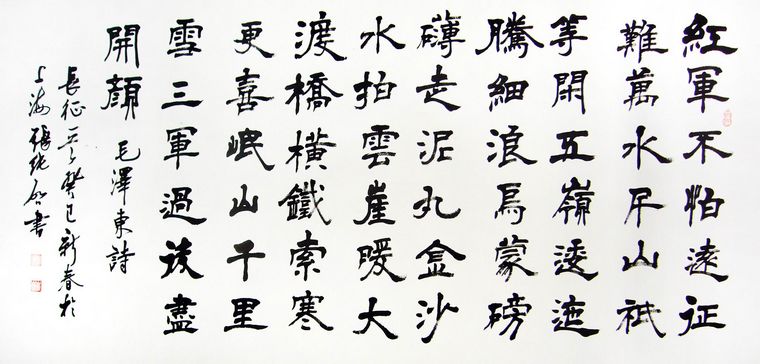 紅軍不怕遠征
難萬水千山祇
等閑五嶺逶迤
騰細浪烏蒙磅
礴走泥丸金沙
水拍雲崖暖大
渡橋橫鐵索寒
更喜岷山千里
雪三軍過後盡
開顏 毛澤東詩
長征癸巳新春於
上海張書